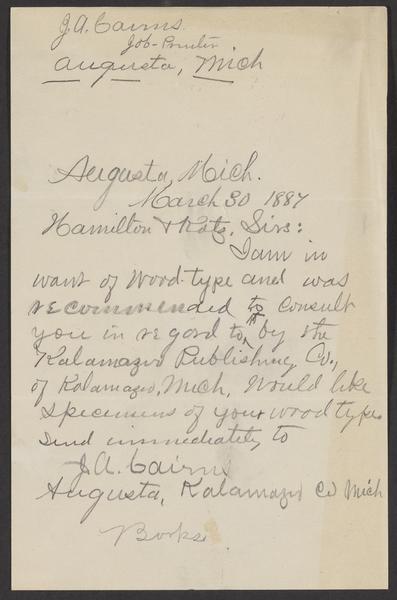 J. A. Cairns.
Job-Printer
Augusta, Mich
Augusta, Mich.
March 30 1887
Hamilton & Katz, Sirs:
I am in
want of Wood-type and was
recommended to consult
you in regard to, by the
Kalamazoo Publishing Co.,
of Kalamazoo, Mich, Would like
Specimens of your wood type
Send immediately to
J. A. Cairns
Augusta, Kalamazoo Co Mich